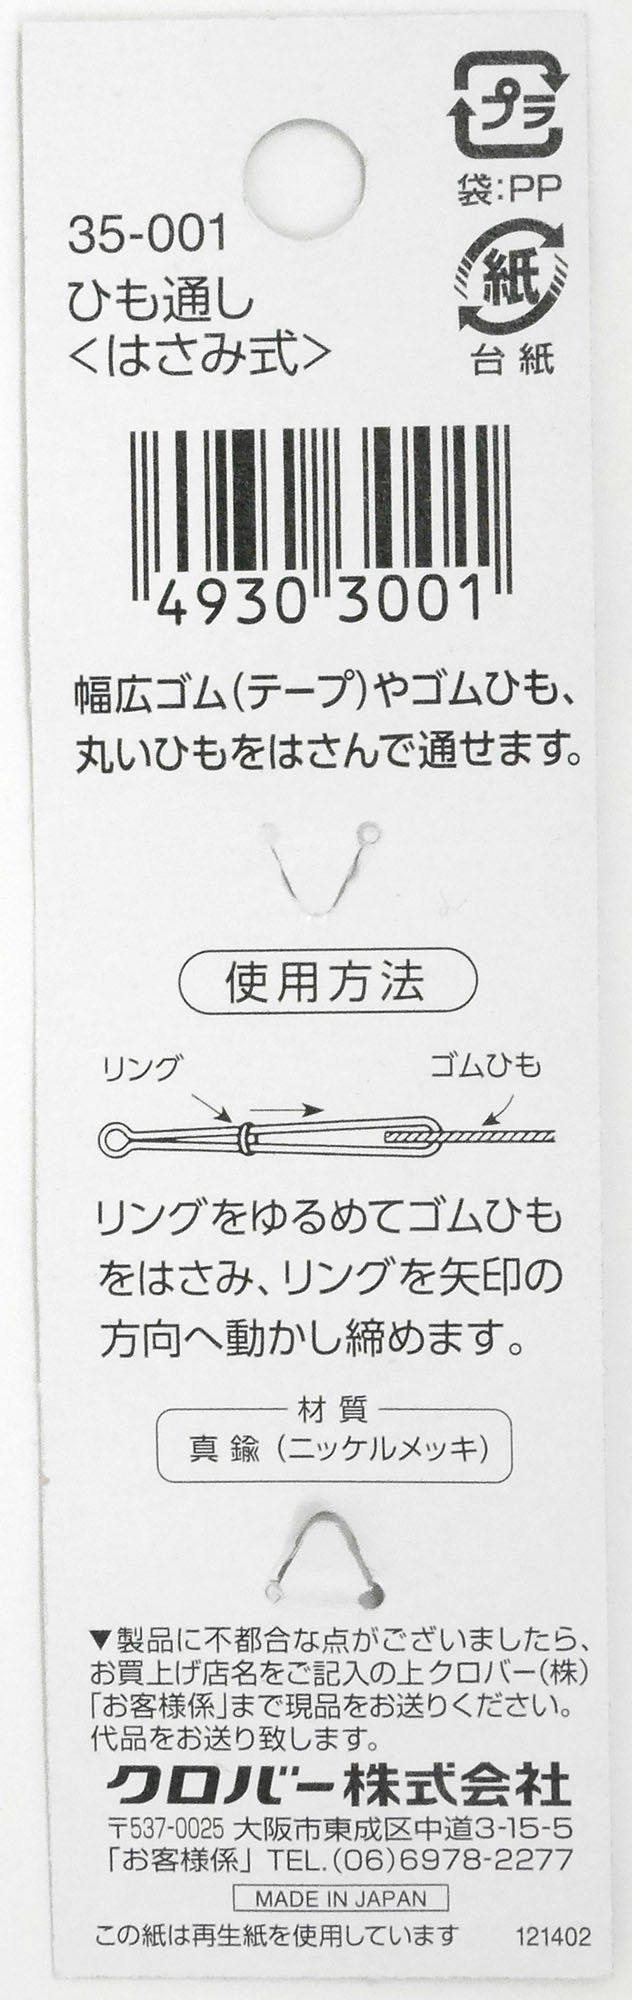 プラ
袋:PP
紙
台紙
35-001
ひも通し
<はさみ式>
4930 3001
幅広ゴム(テープ)やゴムひも、
丸いひもをはさんで通せます。
使用方法
リング ゴムひも
リングをゆるめてゴムひも
をはさみ、リングを矢印の
方向へ動かし締めます。
材質
真鍮(ニッケルメッキ)
▼製品に不都合な点がございましたら、
お買上げ店名をご記入の上クロバー(株)
「お客様係」まで現品をお送りください。
代品をお送り致します。
クロバー株式会社
〒537-0025 大阪市東成区中道3-15-5
「お客様係」 TEL.(06)6978-2277
MADE IN JAPAN
この紙は再生紙を使用しています 121402